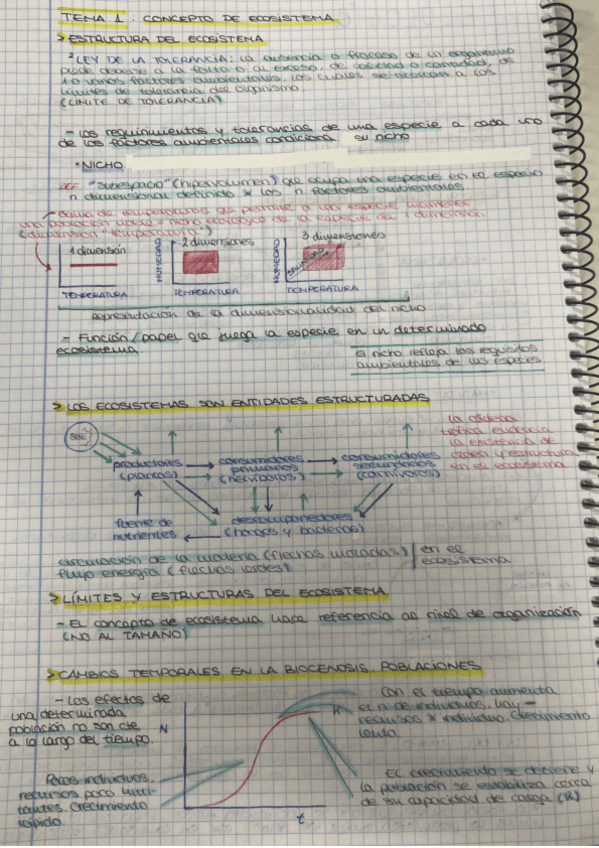 TEMA 1: CONCEPTO DE ECOSISTEMA
> ESTRUCTURA DEL ECOSISTEMA
LEY DE LA TOLERANCIA: La ausencia o fracaso de un organismo
puede deberse a la falta o al exceso, de calidad o cantidad, de
1 o varios factores ambientales, los cuales se acercan a los
límites de tolerancia del organismo.
(LÍMITE DE TOLERANCIA)
- Los requerimientos y tolerancias de una especie a cada uno
de los factores ambientales condiciona su nicho
• NICHO
DEF "Subespacio" (hipervolumen) que ocupa una especie en el espacio
n dimensional definido x los n factores ambientales.
Gama de temperaturas que permite a una especie mantener
una población viable = nicho ecológico de la especie de 1 dimensión.
(dimensión "temperatura")
1 dimensión
TEMPERATURA
2 dimensiones
HUMEDAD
TEMPERATURA
3 dimensiones
HUMEDAD
SALINIDAD
TEMPERATURA
Representación de la dimensionalidad del nicho
- Función/papel que juega la especie en un determinado
ecosistema.
El nicho refleja los requisitos
ambientales de las especies
> LOS ECOSISTEMAS SON ENTIDADES ESTRUCTURADAS
SOL
productores
(plantas)
consumidores
primarios
(hervíboros)
consumidores
secundarios
(carnívoros)
La cadena
trófica evidencia
la existencia de
orden y estructura
en el ecosistema
fuente de
nutrientes
descomponedores
(hongos y bacterias)
circulación de la materia (flechas moradas)
flujo energía (flechas verdes)
en el
ecosistema
> LÍMITES Y ESTRUCTURAS DEL ECOSISTEMA
- El concepto de ecosistema hace referencia al nivel de organización
(NO AL TAMAÑO)
> CAMBIOS TEMPORALES EN LA BIOCENOSIS. POBLACIONES
- Los efectos de
una determinada
población no son cte
a lo largo del tiempo.
Pocos individuos,
recursos poco limi-
tantes. Crecimiento
rápido.
N
K
t
Con el tiempo aumenta
el nº de individuos, hay -
recursos x individuo. Crecimiento
lento.
El crecimiento se detiene y
la población se estabiliza cerca
de su capacidad de carga (K)